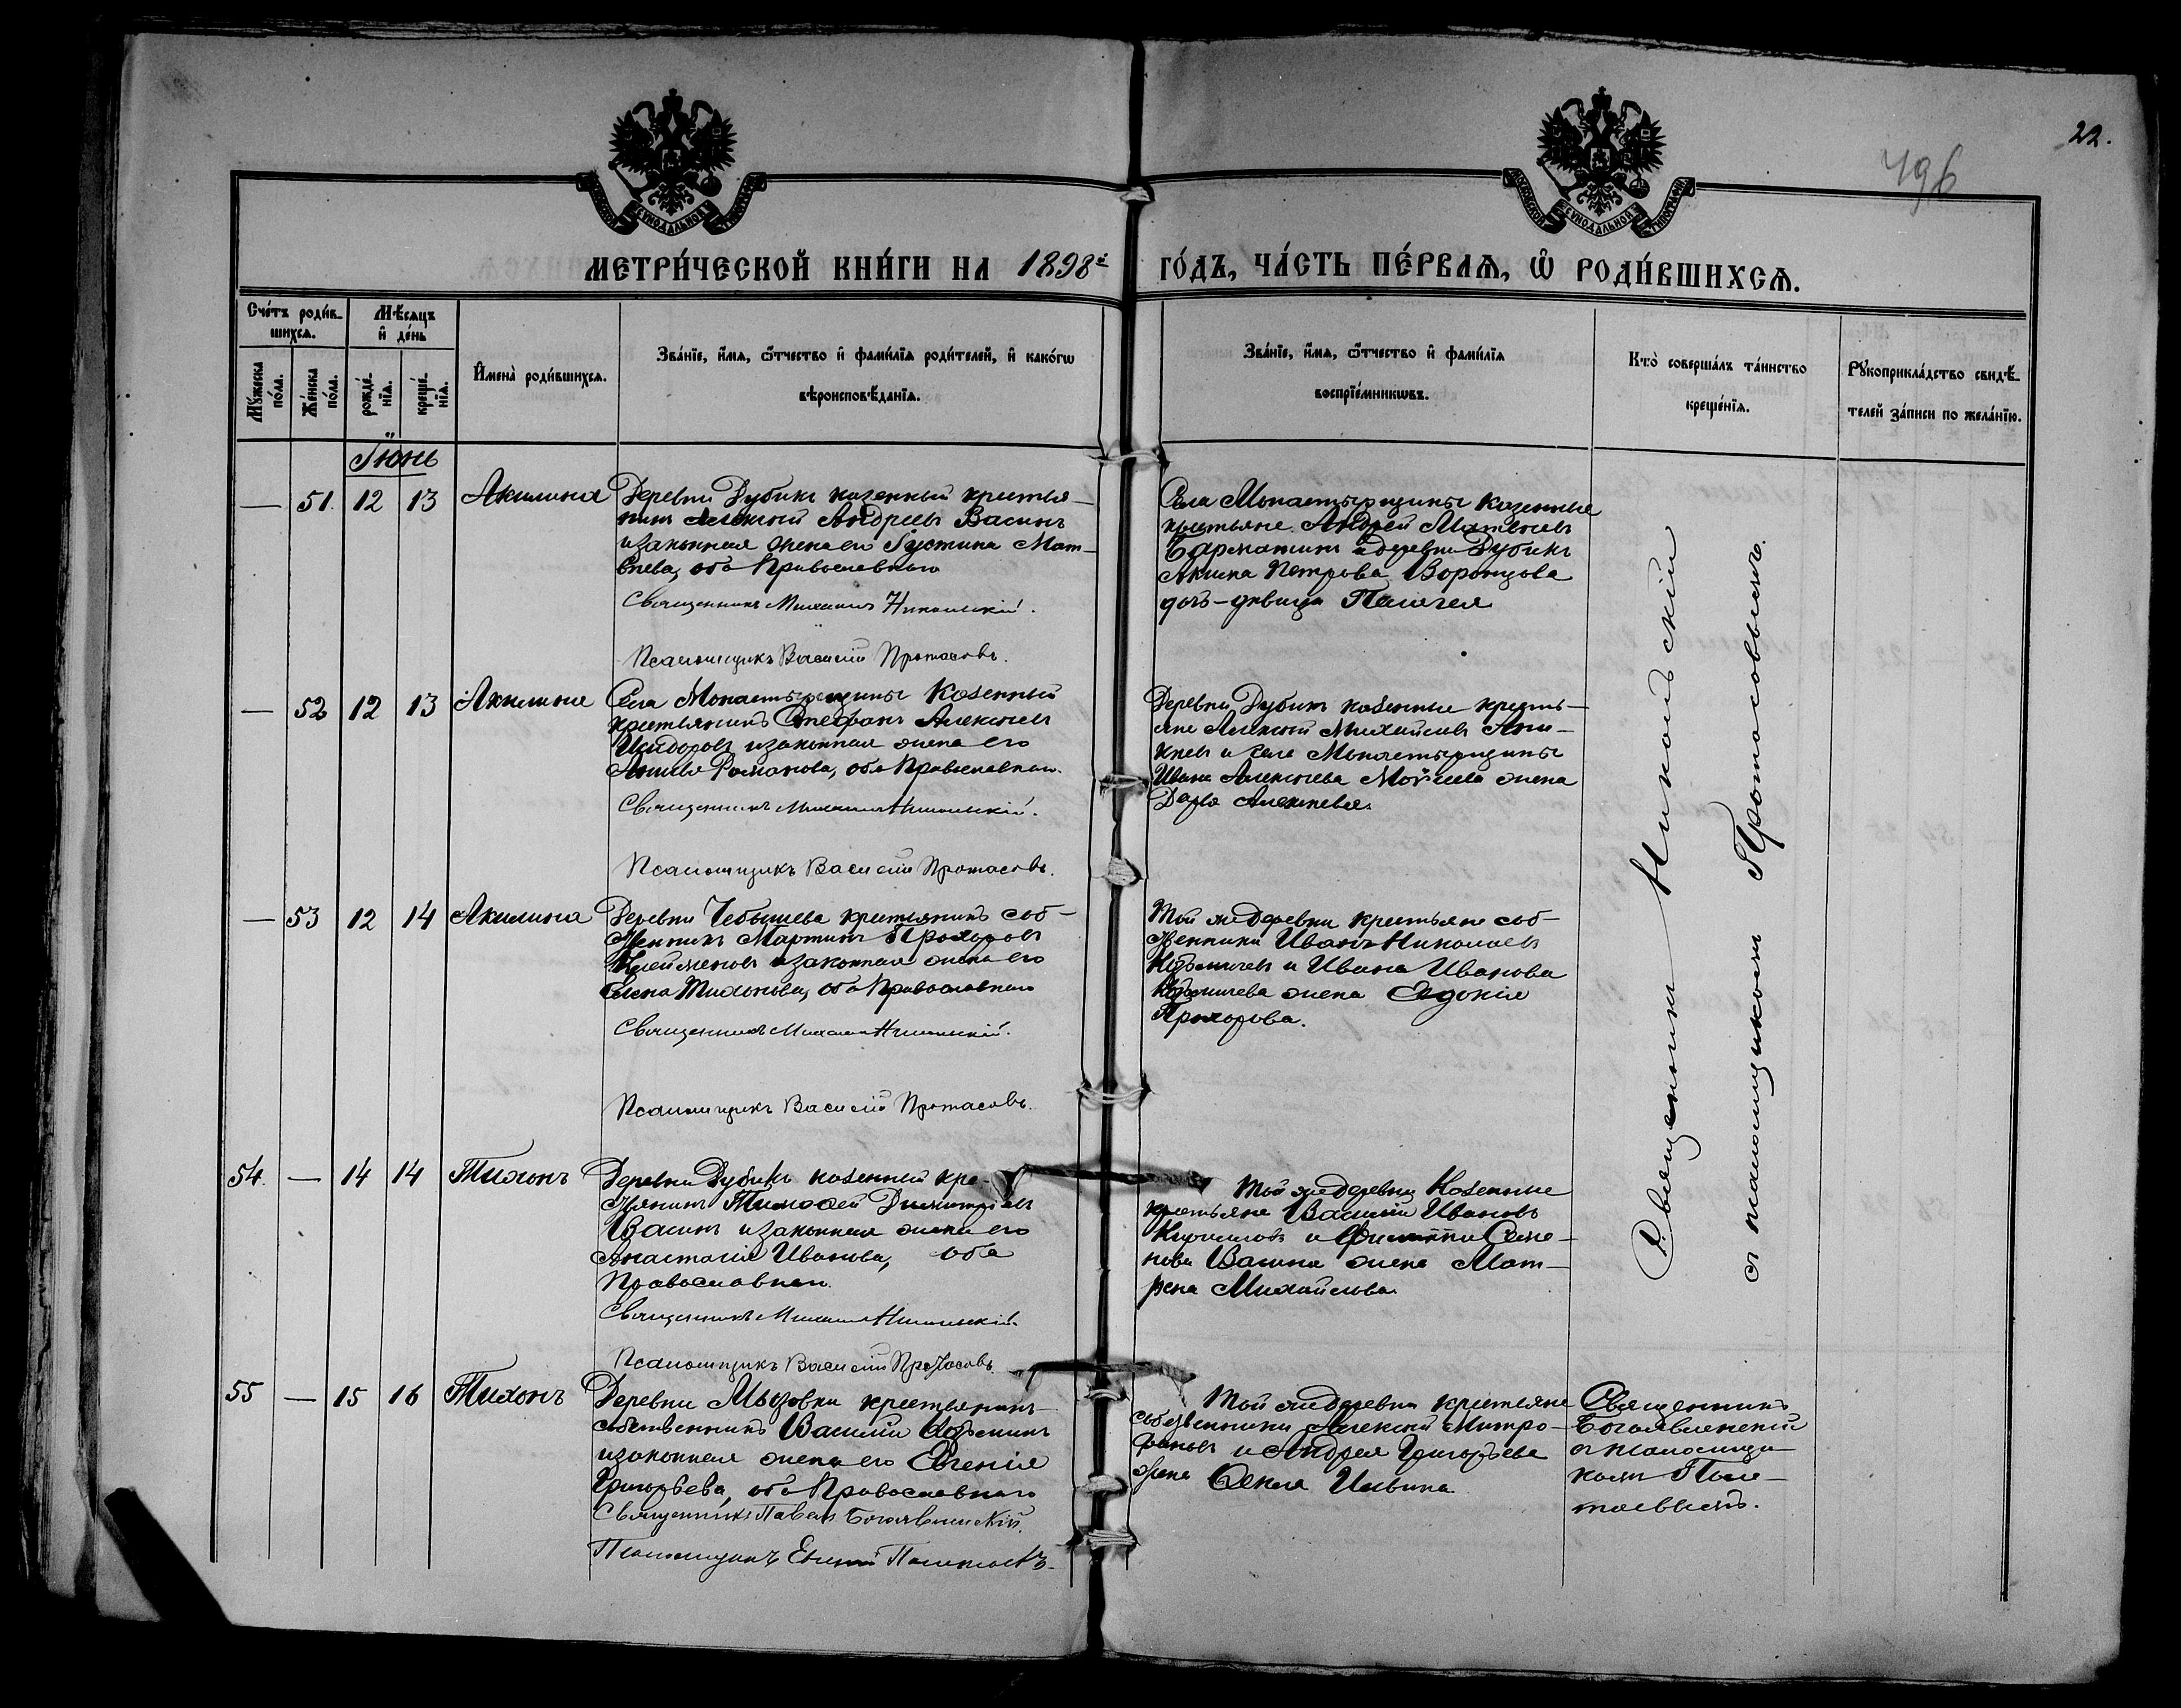 22.
496
МОСКОВСКОЙ СѴНОДАЛЬНОЙ ТИПОГРАФІИ
МОСКОВСКОЙ СѴНОДАЛЬНОЙ ТИПОГРАФІИ
МЕТРИ́ЧЕСКОЙ КНИ́ГИ НА 1898й ГО́ДЪ, ЧА́СТЬ ПЕ́РВАѦ, Ѡ҆ РОДИ́ВШИХСѦ.
Сче́тъ роди́в-
шихсѧ.
Мꙋ́жеска по́ла.
Же́нска по́ла.
Мѣ́сѧцъ
и҆ де́нь
рожде́-нїѧ.
креще́-нїѧ.
И҆мена̀ роди́вшихсѧ.
Зва́нїе, и҆́мѧ, ѻ҆́тчество и҆ фами́лїѧ роди́телей, и҆ како́гѡ
вѣроисповѣ́данїѧ.
Зва́нїе, и҆́мѧ, ѻ҆́тчество и҆ фами́лїѧ
воспрїе́мникѡвъ.
Кто̀ соверша́лъ та́инство
креще́нїѧ.
Рꙋкоприкла́дство свидѣ́-
телей за́писи по жела́нїю.
Іюнь
— 51. 12 13 Акилина
Деревни Дубикъ казенный крестья-
нинъ Алексѣй Андреевъ Васинъ
и законная жена его Іустина Мат-
вѣева, оба Православнаго
Священникъ Михаилъ Никольскій.
Псаломщикъ Василій Протасовъ.
Села Монастырщины казенные
крестьяне Андрей Матвѣевъ
Бармотинъ и деревни Дубикъ
Акима Петрова Воронцова
дочь-дѣвица Пелагея
Священникъ Никольскій
съ псаломщикомъ Протасовымъ.
— 52 12 13 Акилина
Села Монастырщины Казенный
крестьянинъ Стефанъ Алексѣевъ
Исидоровъ и законная жена его
Романова, оба Православнаго.
Священникъ Михаилъ Никольскій.
Псаломщикъ Василій Протасовъ.
Деревни Дубикъ казенные кресть-
яне Алексѣй Михайловъ Ани-
кѣевъ и села Монастырщины
Ивана Алексѣева Моисеева жена
Дарья Алексѣева.
— 53 12 14 Акилина
Деревни Чебышева крестьянинъ соб-
ственникъ Мартинъ Прохоровъ
Клейменовъ и законная жена его
Елена Тихонова, оба Православнаго
Священникъ Михаилъ Никольскій.
Псаломщикъ Василій Протасовъ.
Той же деревни крестьяне соб-
ственники Иванъ Николаевъ
Кузьмичевъ и Ивана Иванова
Кузьмичева жена
Прохорова.
54. — 14 14 Тихонъ
Деревни Дубикъ казенный кре-
стьянинъ Тимоѳей Димитріевъ
Васинъ и законная жена его
Анастасія Иванова, оба
Православнаго.
Священникъ Михаилъ Никольскій.
Псаломщикъ Василій Протасовъ.
Той же деревни Казенные
крестьяне Василій Ивановъ
Кирилловъ и Филиппа Семе-
нова Васина жена Мат-
рена Михайлова.
55 — 15 16 Тихонъ
Деревни крестьянинъ
собственникъ Василій Кузьминъ
и законная жена его Евгенія
Григорьева, оба Православнаго
Священникъ Павелъ Богоявленскій.
Псаломщикъ
Той же деревни крестьяне
собственники Алексѣй Митро-
фановъ и Андрея Григорьева
жена Ѳекла Ильина
Священникъ
Богоявленскій
съ псаломщи-
комъ